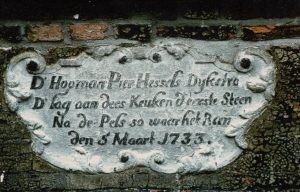 D' Hopman Pier Hessels Dykstra
D' lag aan dees Keuken d'eerste Steen
Na de Pels so waar het Reen
den 5 Maart 1733.